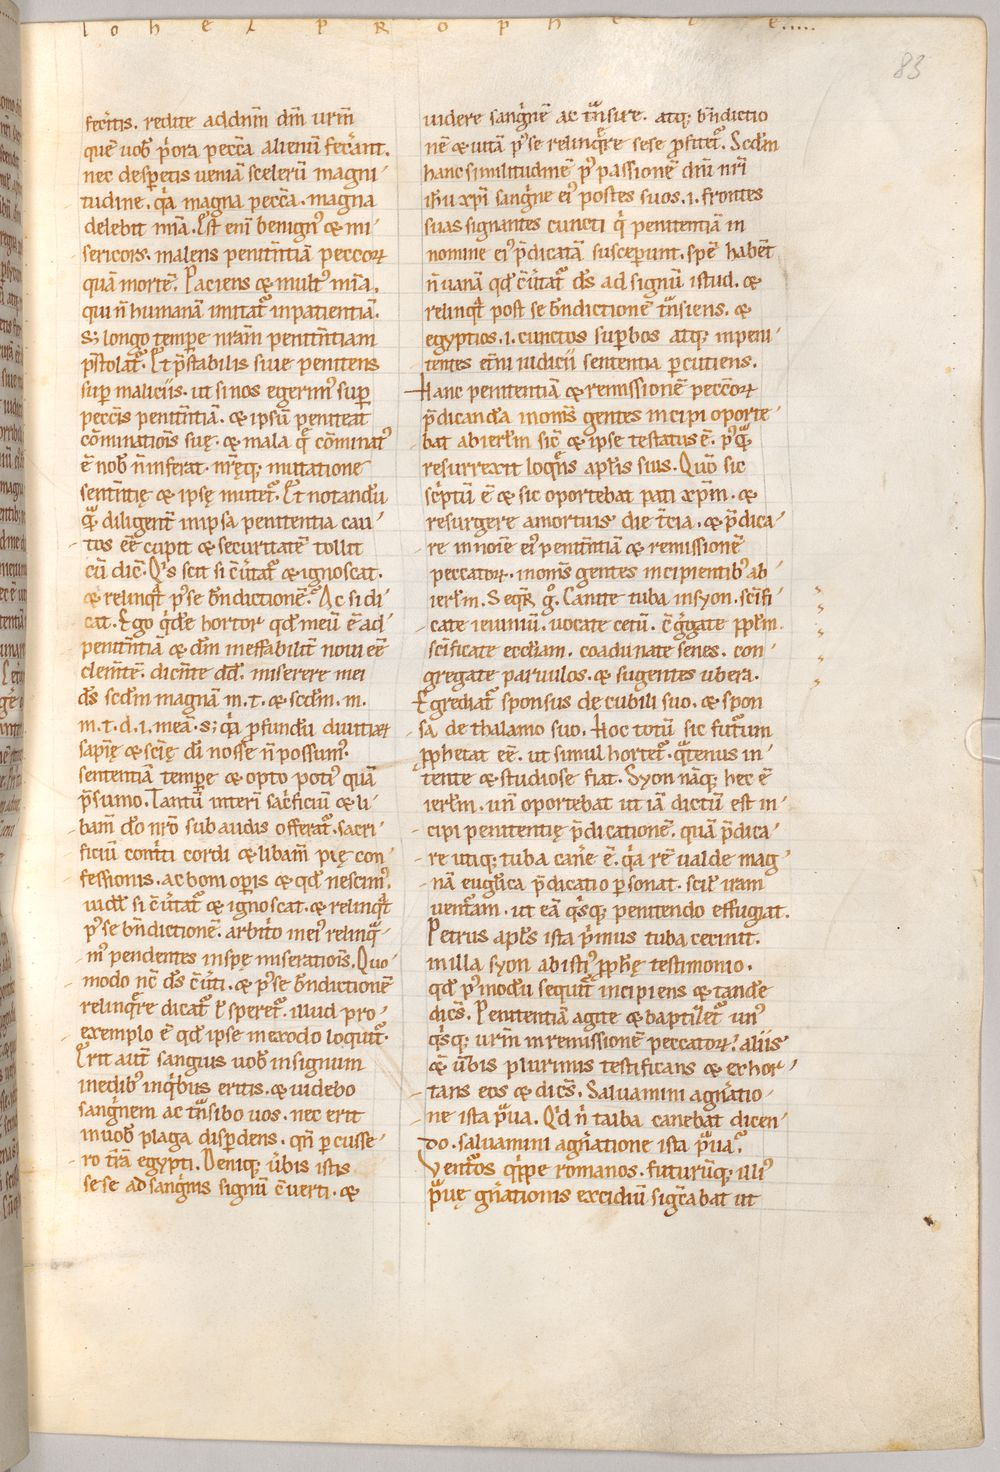 I o h e l p R o p h e t e .....
83
fecitis. redite addnm̄ dm̄ urm̄
quē uob̄ p̄ora pecc̄a alienū fecāant.
nec desperetis ueniā scelerū magni
tudine. q̄a magna pecc̄a. magna
delebit mīa. Est enī benignꝰ & mi
sericors. malens penitn̄tiā peccorꝝ
quā mortē. Paciens & multꝰ mīa.
qui n̄ humanā imitat᷑ inpatientiā.
s; longo tempe nr̄am penitn̄tiam
p̄stolat᷑. Et p̄stabilis siue penitens
sup maliciis. ut si nos egerimꝰ sup
pecc̄is penitn̄tiā. & ipsū peniteat
cōminatiōis suę. & mala q̄ cōminatꝰ
ē nob̄ n̄ inferat. nr̄ęq; mutatione
sentn̄tię & ipsę mutet᷑. Et notandū
q̄ diligent̄ in ipsa penitentia cau
tos eē cupit & securitatē tollit
cū dic̄. Qis scit si c̄uitat᷑ & ignoscat.
& relinqt p̄se bn̄dictionē. Ac si di
cat. Ego qide hortor qd meū ē ad
penitn̄tiā & dm̄ ineffabilit̄ noui eē
clemn̄tē. dicn̄te dd̄. miserere mei
ds̄ scdm̄ magnā m. t. & scdm̄. m.
m. t. d. i. meā. s; q̄a p̄fundū diuitiarꝝ
sapię & scię dī nosse n̄ possumꝰ.
sententiā tempe & opto potiꝰ quā
p̄sumo. Tantū interī sacficiū & li
bam̄ dō nr̄o subaudis offerat᷑. sacri
ficiū contiti cordi & libam̄ pię con
fessionis. ac boni opis & qd nescimꝰ.
uidel᷑ si c̄uitat᷑ & ignoscat. & relinqt
pꝰse bn̄dictionē. arbitio meiꝰ relinq
mꝰ pendentes in spę miseratiōis. Quo
modo nc̄ ds̄ c̄uti. & pꝰse bn̄dictionē
relinqre dicat᷑ ł speret᷑. illud pro
exemplo ē qd ipse in exodo loquit᷑.
Erit aut̄ sangius uob̄ in signum
in edibꝰ inqbus eritis. & uidebo
sangnem ac tn̄sibo uos. nec erit
in uob̄ plaga dispdens. qn̄ pcusse
ro tr̄a egypti. Deniq; ubis istis
sese ad sangnis signū c̄uerti. &
uidere sangnē ac tn̄sire. atq; bn̄dictio
nē & uitā pꝰse relinqre sese p̄fitet᷑. Scdm̄
hanc similitudinē pꝰ passionē dnī nr̄i
ih̄u xp̄i sangne eiꝰ postes suos. i. frontes
suas signantes cuncti q̄ penitentiā in
nomine eiꝰ p̄dicatā susceperunt. spē habent̄
n̄ uanā qd c̄uitat᷑ ds̄ ad signū istud. &
relinqt post se bn̄dictionē tn̄siens. &
egyptios. i. cunctos supbos atq; inpeni
tentes etn̄i iudicii sententia pcutiens.
Hanc penitentiā & remissionē peccorꝝ
p̄dicanda in omīs gentes incipi oporte
bat ab ierlm̄ sic̄ & ipse testatus ē. pꝰq
resurrexit loqns aplis suis. Qm̄ sic
sc̄ptū ē & sic oportebat pati xp̄m. &
resurgere a mortuis die tc̄ia. & p̄dica
re in noīe eiꝰ penitn̄tiā & remissionē
peccatorꝝ. in omīs gentes incipientibꝰ ab
ierlm̄. Seqr̄ g. Canite tuba in syon. sc̄ifi
cate ieiuniū. uocate cetū. c̄ggate pplm̄.
sc̄ificate eccliam. coadunate senes. con
gregate paruulos. & sugentes ubera.
Egrediat᷑ sponsus de cubili suo. & spon
sa de thalamo suo. Hoc totū sic futurum
pphetat eē. ut simul hortet᷑. qtenus in
tente & studiose fiat. Syon nāq; hec ē
ierlm̄. un̄ oportebat ut iā dictū est in
cipi penitentię p̄dicationē. quā p̄dica
re utiq; tuba cane ē. q̄a rē ualde mag
nā euglica p̄dicatio psonat. scil᷑ iram
uentam. ut eā qsq; penitendo effugiat.
Petrus apls̄ ista p̄mus tuba cecinit.
in illa syon ab istiꝰ pphę testimonio.
qd pꝰmodū sequit᷑ incipiens & tande
dicn̄s. Penitentiā agite & baptizet᷑ unꝰ
qsq; urm̄ in remissionē peccatorꝝ. aliis
& ubis plurimis testificans & exhor
tans eos & dicn̄s. Saluamini agnatio
ne ista p̄ua. Qid n̄ talba canebat dicen
do. saluamini agnatione ista p̄ua.
Ventos qppe romanos. futurūq; illiꝰ
p̄uę gnationis excidiū signabat ut